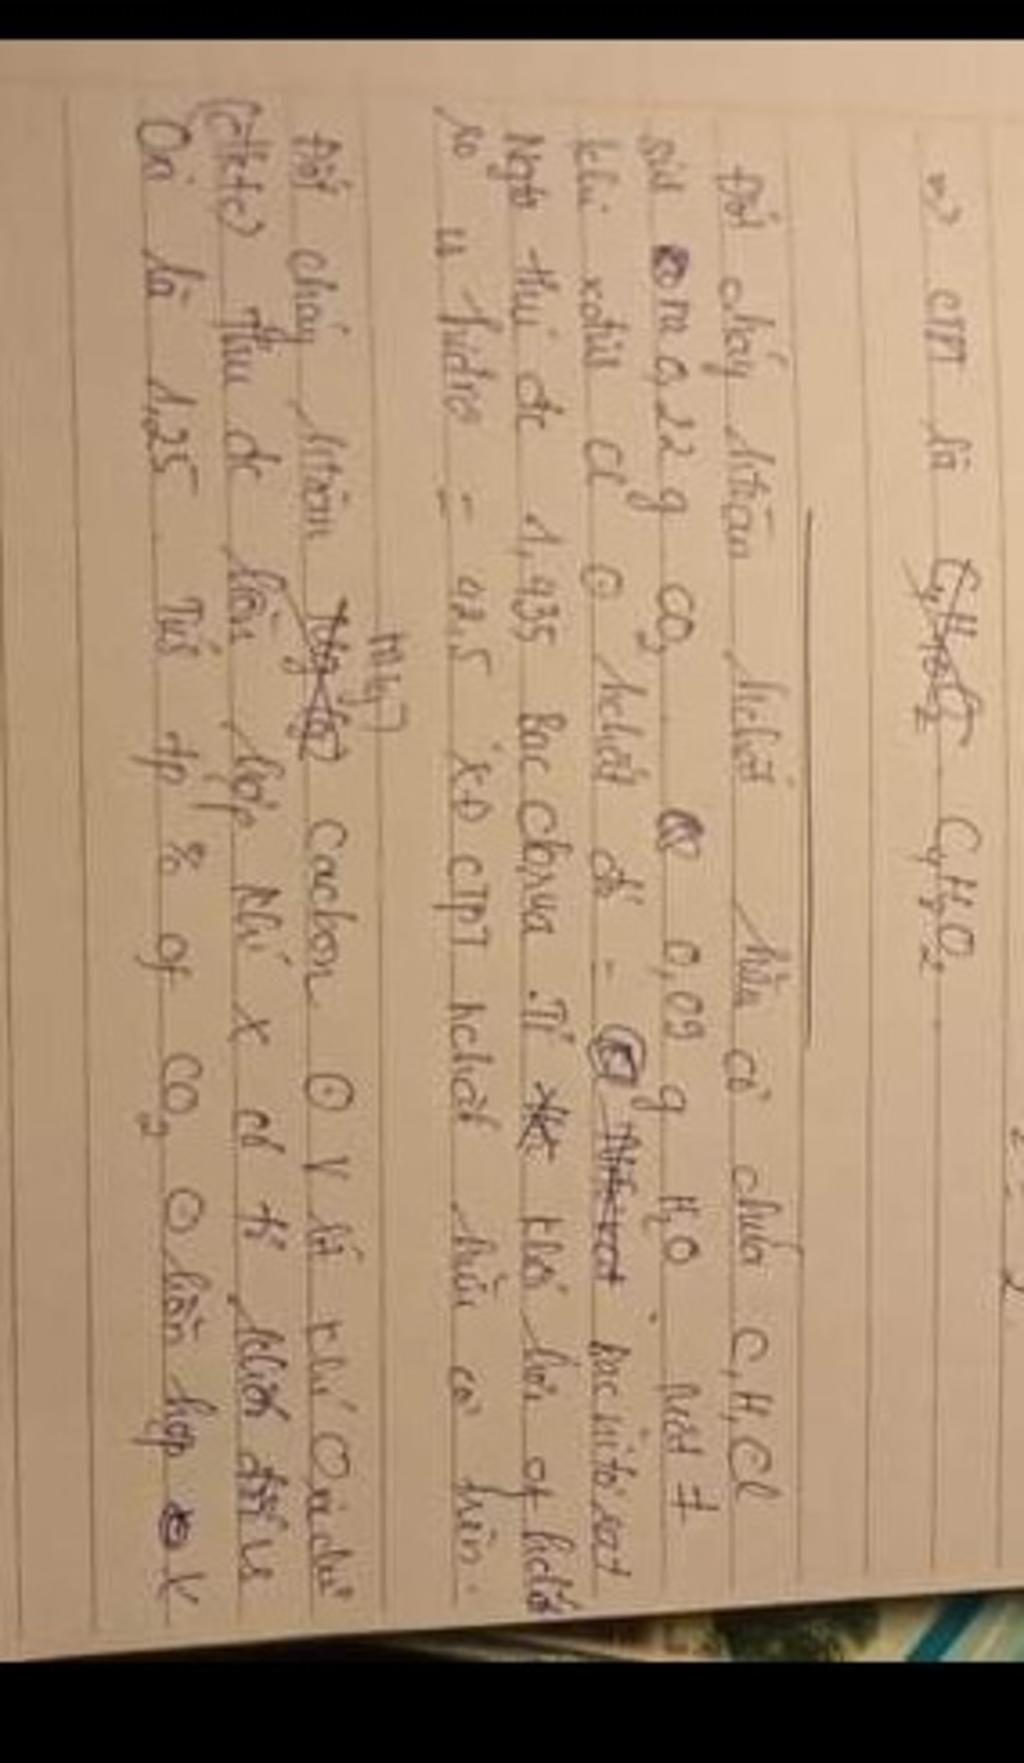 => CTPT là C4H8O2
Đốt cháy htoàn hchất hữu cơ chứa C, H, Cl
sinh ra 0,22 g CO2 0,09 g H2O. Mặt ≠
khi xđịnh Cl hchất đó = Bạc nitơrat
thu đc 1,435 Bạc clorua. Tỉ khối hơi of hchất
so vs hidro = 42,5 XĐ CTPT hchất hữu cơ trên.
Đốt cháy htoàn Cacbon V là khí Oxi dư
(đktc) thu đc hỗn hợp khí X có tỉ khối đối vs
Oxi là 1,25. Tính tp % of CO2 hỗn hợp X